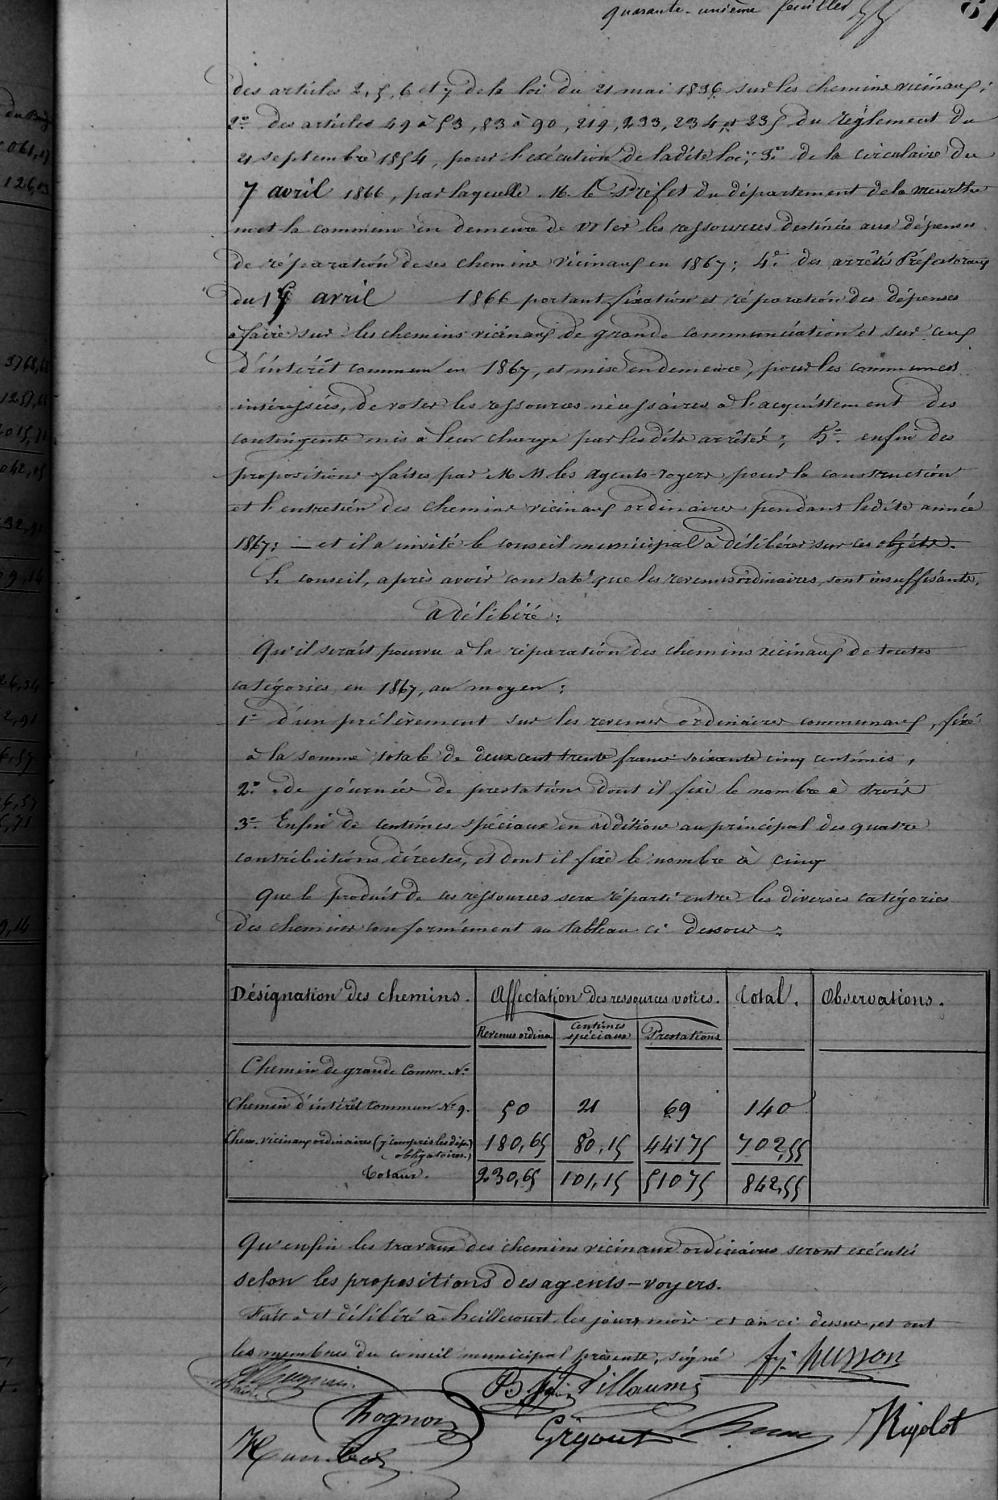 quarante-unième feuillet
des articles 2, 5, 6 et 7 de la loi du 21 mai 1836 sur les chemins vicinaux;
2° des articles 49 à 53, 83 à 90, 219, 233, 234 et 235 du règlement du
21 septembre 1854, pour l'exécution de ladite loi; 3° de la circulaire du
7 avril 1866, par laquelle M. le Préfet du département de la Meurthe
met la commune en demeure de voter les ressources destinées aux dépenses
de réparation de ses chemins vicinaux en 1867; 4° des arrêtés Préfectoraux
du 15 avril 1866 portant fixation et réparation des dépenses
à faire sur les chemins vicinaux de grande communication et sur ceux
d'intérêt commun en 1867, et mise en demeure, pour les communes
intéressées, de voter les ressources nécessaires à l'acquittement des
contingents mis à leur charge par lesdits arrêtés; 5° enfin des
propositions faites par M M. les Agents-voyers pour la construction
et l'entretien des chemins vicinaux ordinaires pendant ladite année
1867; — et il a invité le conseil municipal à délibérer sur ces objets.
Le conseil, après avoir constaté que les revenus ordinaires, sont insuffisants,
a délibéré:
Qu'il serait pourvu à la réparation des chemins vicinaux de toutes
catégories, en 1867, au moyen:
1° d'un prélèvement sur les revenus ordinaires communaux, fixé
à la somme totale de deux cent trente francs soixante cinq centimes,
2° de journées de prestations dont il fixe le nombre à trois
3° Enfin de centimes spéciaux en addition au principal des quatre
contributions directes, et dont il fixe le nombre à cinq
Que le produit de ces ressources sera réparti entre les diverses catégories
des chemins conformément au tableau ci dessous:
Désignation des chemins. Affectation des ressources votées. Total. Observations.
Revenus ordina Centimes spéciaux Prestations
Chemin de grande Comm. N°
Chemin d'intérêt commun N° 9. 50 21 69 140
Chem. vicinaux ordinaires (y compris les dép. obligatoires.) 180,65 80,15 441 75 702,55
Totaux. 230,65 101,15 510 75 842,55
Qu'enfin les travaux des chemins vicinaux ordinaires seront exécutés
selon les propositions des agents-voyers.
Fait et délibéré à heillecourt les jours, mois et an ci dessus, et ont
les membres du conseil municipal présents, signé
husson
Villaume
hognon
Grégoire
Rigolot